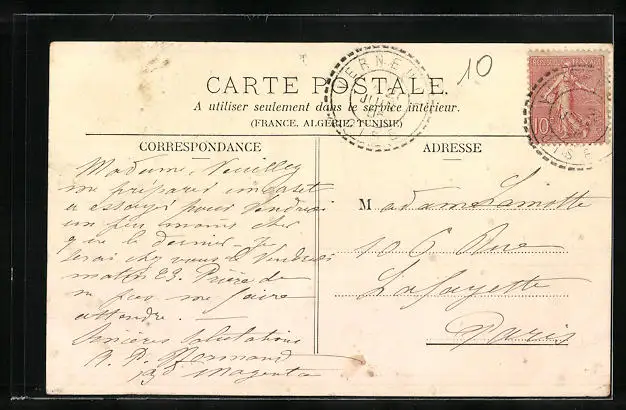 10
CARTE POSTALE.
A utiliser seulement dans le service intérieur.
(FRANCE, ALGERIE, TUNISIE)
REPUBLIQUE FRANÇAISE
10
VERNEUIL
JUIN
OISE
CORRESPONDANCE
Madame, Veuillez
me préparer un corset
a essayer pour Vendredi
un peu moins cher
que le dernier. Je
serai chez vous le Vendredi
matin 23. Prière de
ne pas me faire
attendre. —
Sincères Salutations
Normand
Bd Magenta
ADRESSE
Madame Lamotte
106 Rue
Lafayette
Paris